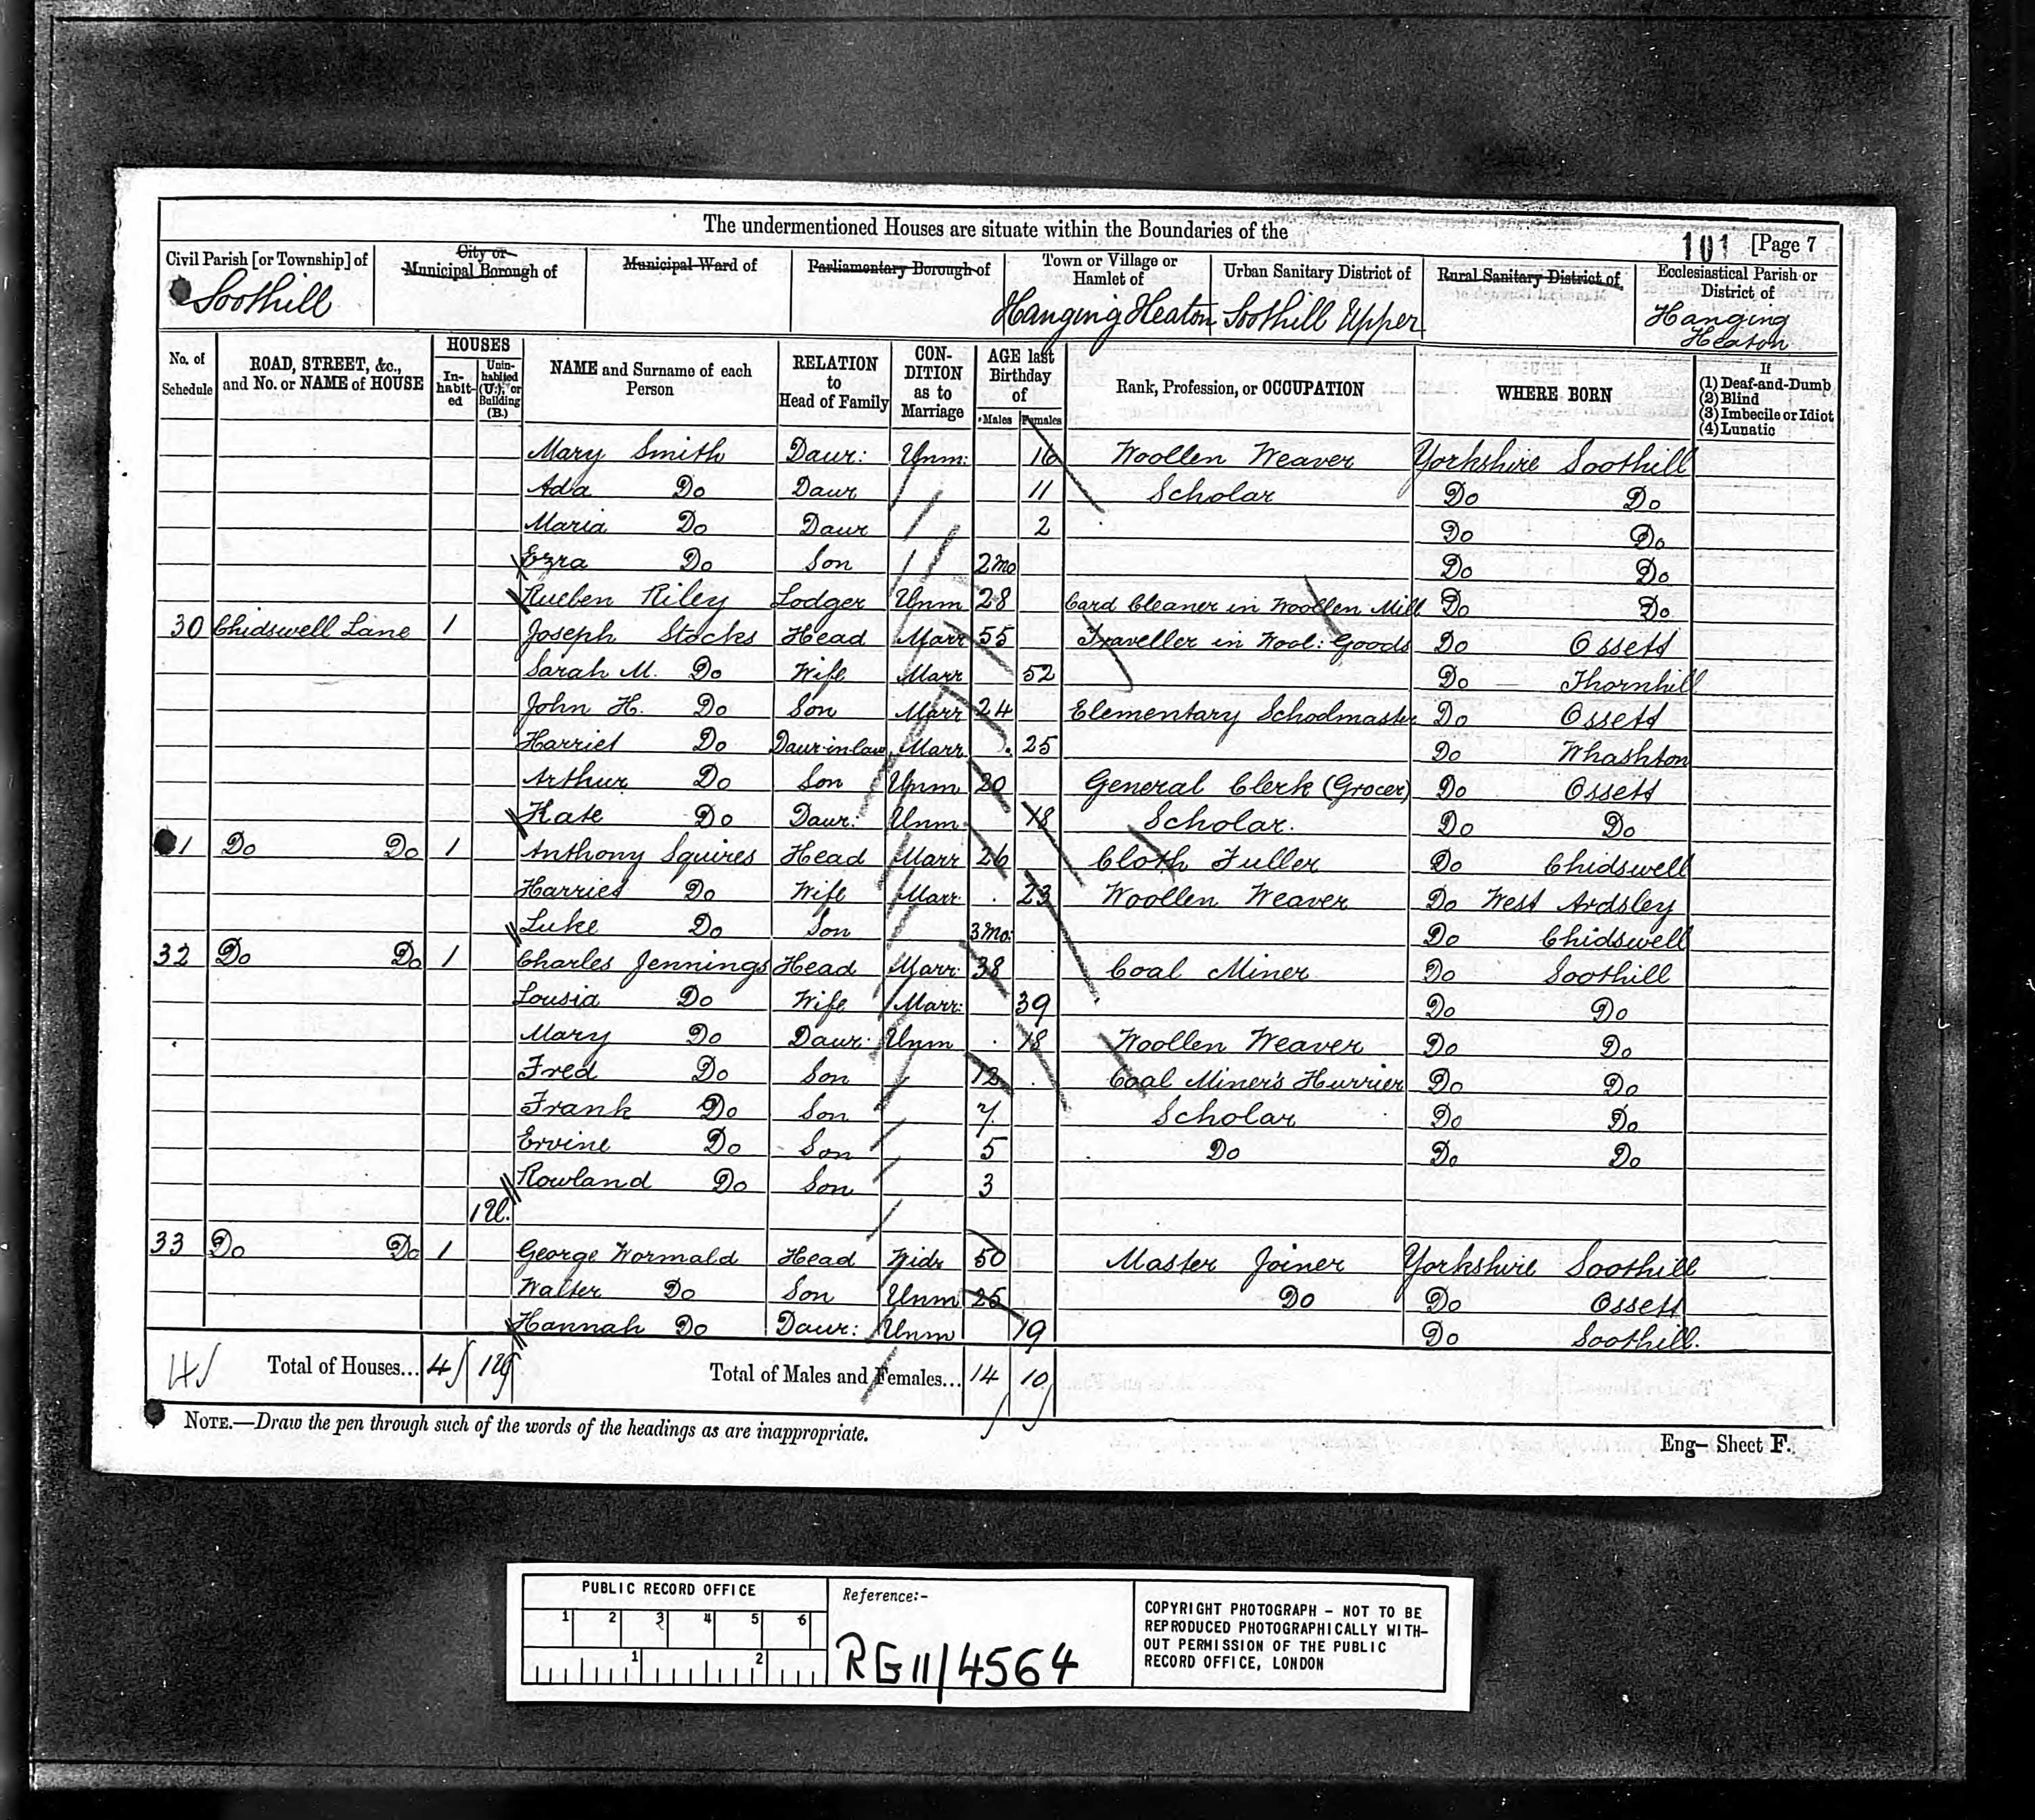 The undermentioned Houses are situate within the Boundaries of the
101 [Page 7
Civil Parish [or Township] of
City or Municipal Borough of
Municipal Ward of
Parliamentary Borough of
Town or Village or Hamlet of
Urban Sanitary District of
Rural Sanitary District of
Ecclesiastical Parish or District of
Soothill
Hanging Heaton
Soothill Upper
Hanging Heaton
No. of Schedule
ROAD, STREET, &c., and No. or NAME of HOUSE
HOUSES
In-habit-ed
Unin-habited (U.), or Building (B.)
NAME and Surname of each Person
RELATION to Head of Family
CON-DITION as to Marriage
AGE last Birthday of
Males Females
Rank, Profession, or OCCUPATION
WHERE BORN
If
(1) Deaf-and-Dumb
(2) Blind
(3) Imbecile or Idiot
(4) Lunatic
Mary Smith Daur: Unm: 16 Woollen Weaver Yorkshire Soothill
Ada Do Daur 11 Scholar Do Do
Maria Do Daur 2 Do Do
Ezra Do Son 2mo Do Do
Rueben Riley Lodger Unm 28 Card Cleaner in Woollen Mill Do Do
30 Chidswell Lane 1 Joseph Stocks Head Marr 55 Traveller in Wool: Goods Do Ossett
Sarah M. Do Wife Marr 52 Do Thornhill
John H. Do Son Marr 24 Elementary Schoolmaster Do Ossett
Harriet Do Daur-in-law Marr 25 Do Whashton
Arthur Do Son Unm 20 General Clerk (Grocer) Do Ossett
Kate Do Daur: Unm 18 Scholar. Do Do
1 Do Do 1 Anthony Squires Head Marr 26 Cloth Fuller Do Chidswell
Harriet Do Wife Marr. 23 Woollen Weaver Do West Ardsley
Luke Do Son 3mo: Do Chidswell
32 Do Do 1 Charles Jennings Head Marr: 38 Coal Miner Do Soothill
Lousia Do Wife Marr: 39 Do Do
Mary Do Daur: Unm 18 Woollen Weaver Do Do
Fred Do Son 12 Coal Miner's Hurrier Do Do
Frank Do Son 7 Scholar Do Do
Ervine Do Son 5 Do Do Do
Rowland Do Son 3
1 U.
33 Do Do 1 George Wormald Head Widr 50 Master Joiner Yorkshire Soothill
Walter Do Son Unm 25 Do Do Ossett
Hannah Do Daur: Unm 19 Do Soothill.
4 Total of Houses... 4 1U Total of Males and Females... 14 10
NOTE.—Draw the pen through such of the words of the headings as are inappropriate.
Eng— Sheet F.
PUBLIC RECORD OFFICE
1 2 3 4 5 6
1 2
Reference:-
RG11/4564
COPYRIGHT PHOTOGRAPH - NOT TO BE
REPRODUCED PHOTOGRAPHICALLY WITH-
OUT PERMISSION OF THE PUBLIC
RECORD OFFICE, LONDON